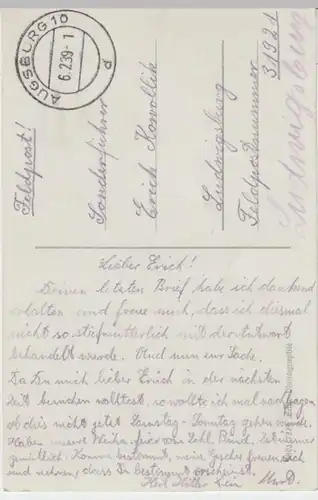 AUGSBURG 10
6.2.39-1
p
Feldpost!
Sonderführer
Erich Kowollik
Ludwigsburg
Feldpostnummer
31921
Ludwigsburg
Lieber Erich!
Deinen letzten Brief habe ich dankend
erhalten und freue mich, dass ich diesmal
nicht so stiefmütterlich mit der Antwort
behandelt werde. Und nun zur Sache.
Da Du mich lieber Erich in der nächsten
Zeit besuchen wolltest, so wollte ich mal nachfragen
ob dies nicht jetzt Samstag-Sonntag gehen würde.
Haben unsere
gemütlich. Komme bestimmt, meine freuen sich
und nehmen, dass Du bestimmt erscheinst.
Heil Hitler Dein